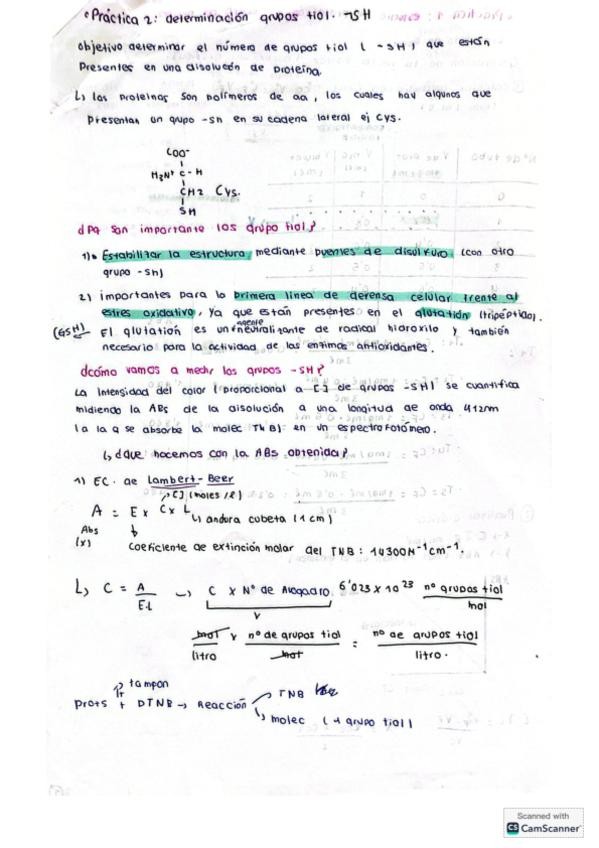 • Práctica 2: determinación grupos tiol. -SH
objetivo determinar el número de grupos tiol (-SH) que están
presentes en una disolución de proteína.
↳ las proteínas son polímeros de aa, los cuales hay algunos que
presentan un grupo -sh en su cadena lateral ej Cys.
COO-
H3N+ C - H
CH2 Cys.
SH
¿Pq son importante los grupo tiol?
1) • Estabilizar la estructura mediante puentes de disulfuro (con otro
grupo -SH)
2) importantes para la primera línea de defensa celular frente al
estres oxidativo, ya que están presentes en el glutatión (tripéptido).
(GSH) El glutatión es un agente neutralizante de radical hidroxilo y también
necesario para la actividad de las enzimas antioxidantes.
¿cómo vamos a medir los grupos -SH?
La intensidad del color (proporcional a [] de grupos -SH) se cuantifica
midiendo la Abs de la disolución a una longitud de onda 412nm
(a la q se absorbe la molec TNB) en un espectrofotómero.
↳ ¿que hacemos con la ABs obtenida?
1) EC. de Lambert-Beer
[] (moles/l)
A = E x C x L
↳ andura cubeta (1 cm)
Abs
(x)
coeficiente de extinción molar del TNB: 14300M-1cm-1.
↳ C = A / E.L → C x Nº de Avogadro 6'023 x 10 23 nº grupos tiol / mol
mol / litro x nº de grupos tiol / mol = nº de grupos tiol / litro.
tampon
prots + DTNB → Reacción TNB
↳ molec (+ grupo tiol)
Scanned with
CS CamScanner